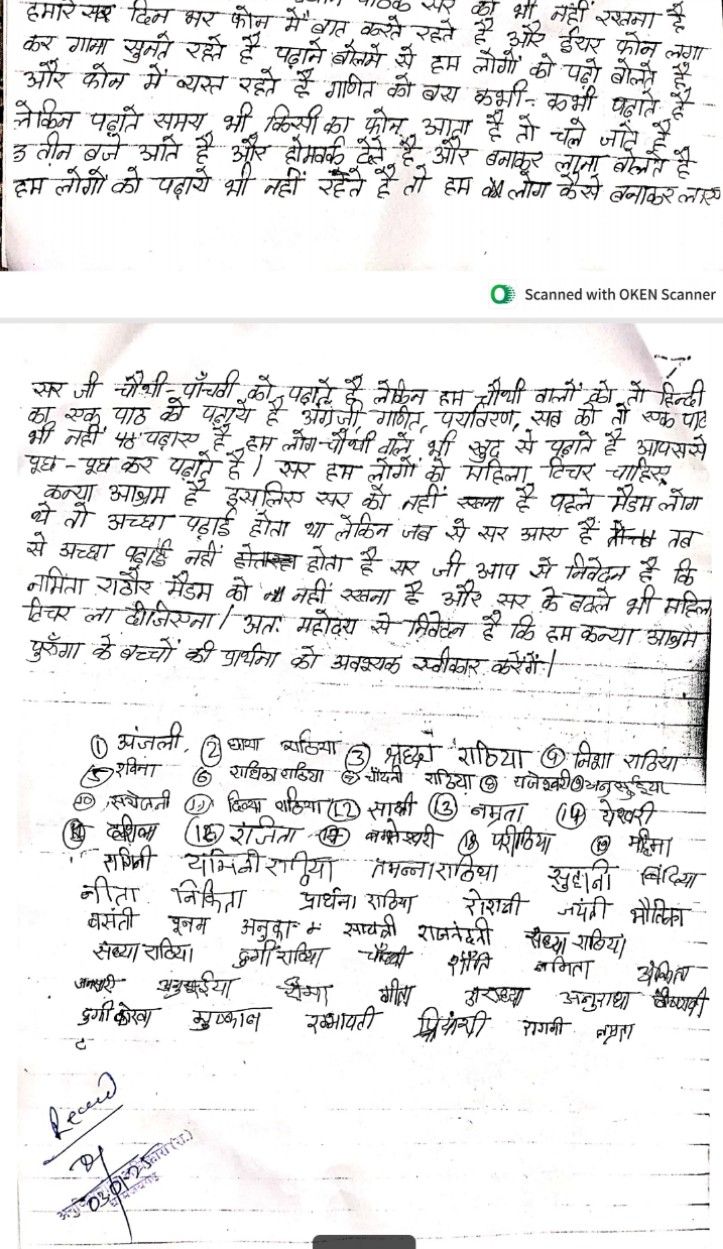 पाठक सर को भी नहीं रखना है
हमारे सर दिन भर फोन में बात करते रहते है और ईयर फोन लगा
कर गाना सुनते रहते है पढ़ाने बोलने से हम लोगों को पढ़ो बोलते है
और फोन में व्यस्त रहते है गणित को बस कभी-कभी पढ़ाते है
लेकिन पढ़ाते समय भी किसी का फोन आता है तो चले जाते है
3 तीन बजे आते है और होमवर्क देते है और बनाकर लाना बोलते है
हम लोगों को पढ़ाये भी नहीं रहते है तो हम लोग कैसे बनाकर लाए
Scanned with OKEN Scanner
सर जी चौथी-पाँचवी को पढ़ाते है लेकिन हम चौथी वालों को तो हिन्दी
का एक पाठ को पढ़ाये है अंग्रेजी, गणित, पर्यावरण, सब को तो एक पाठ
भी नहीं पढ़ाए है हम लोग चौथी वाले भी खुद से पढ़ते है आपस से
पूछ-पूछ कर पढ़ते है। सर हम लोगों को महिला टिचर चाहिए
कन्या आश्रम है इसलिए सर को नहीं रखना है पहले मैडम लोग
थे तो अच्छा पढ़ाई होता था लेकिन जब से सर आए है तब
से अच्छा पढ़ाई नहीं होता है सर जी आप से निवेदन है कि
नमिता राठौर मैडम को नहीं रखना है और सर के बदले भी महिल
टिचर ला दीजिएगा। अतः महोदय से निवेदन है कि हम कन्या आश्रम
पुरुँगा के बच्चों की प्रार्थना को अवश्यक स्वीकार करेंगे।
① अंजली, ② छाया राठिया ③ श्रद्धा राठिया ④ निशा राठिया
⑤ रविना ⑥ राधिका राठिया ⑦ चाँदनी राठिया ⑧ यजेश्वरी ⑨ अनुसुईया
⑩ ⑪ दिव्या राठिया ⑫ साक्षी ⑬ नम्रता ⑭ येश्वरी
⑯ रंजिता ⑱ ⑲ महिमा
रागिनी यामिनी राठिया तमन्ना राठिया सुहानी बिंदिया
नीता निकिता प्रार्थना राठिया रोशनी जयंती मौलिका
वसंती पूनम सावित्री राजनंदनी संध्या राठिया
संध्या राठिया दुर्गा राठिया चाँदनी शांति नमिता अंकिता
अनुसुईया सीमा गीता अनुराधा वैष्णवी
मुस्कान रम्भावती प्रियांशी रागनी नम्रता
Record
03/01/25